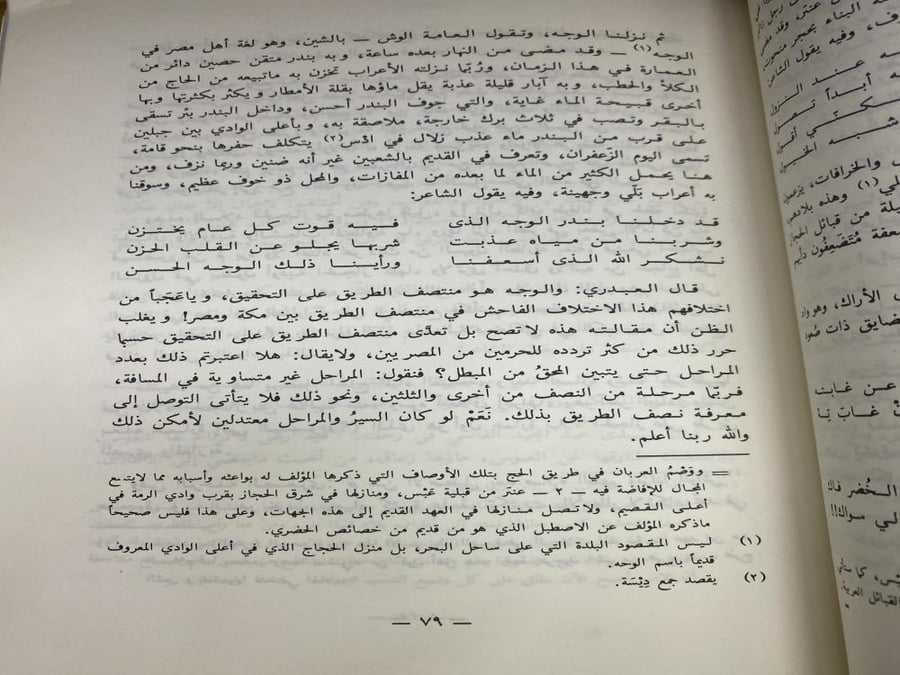 ثم نزلنا الوجه، وتقول العامة الوش — بالشين، وهو لغة أهل مصر في
الوجه(١) — وقد مضى من النهار بعده ساعة، وبه بندر متقن حصين دائر من
العمارة في هذا الزمان، وربّما نزلته الأعراب تخزن به ماتبيعه من الحاج من
الكلأ والحطب، وبه آبار قليلة عذبة يقل ماؤها بقلة الأمطار ويكثر بكثرتها وبها
أخرى قبيحة الماء غاية، والتي جوف البندر أحسن، وداخل البندر بئر تسقى
بالبقر وتصب في ثلاث برك خارجة، ملاصقة به، وبأعلى الوادي بين جبلين
على قرب من البندر ماء عذب زلال في ادْس(٢) يتكلف حفرها بنحو قامة،
تسمى اليوم الزّعفران، وتعرف في القديم بالشعبين غير أنه ضنين وربما نزف، ومن
هنا يحمل الكثير من الماء لما بعده من المفازات، والمحل ذو خوف عظيم، وسوقنا
به أعراب بَلّي وجهينة، وفيه يقول الشاعر:
قد دخلنا بندر الوجه الذى فيه قوت كل عام يختزن
وشربنا من مياه عذبت شربها يجلو عن القلب الحزن
نشكر الله الذى أسعفنا ورأينا ذلك الوجه الحسن
قال العبدري: والوجه هو منتصف الطريق على التحقيق، وياعَجَباً من
اختلافهم هذا الاختلاف الفاحش في منتصف الطريق بين مكة ومصر! ويغلب
الظن أن مقالته هذه لاتصح بل تعدَّى منتصف الطريق على التحقيق حسبما
حرر ذلك من كثر تردده للحرمين من المصريين، ولايقال: هلا اعتبرتم ذلك بعدد
المراحل حتى يتبين المحقُ من المبطل؟ فنقول: المراحل غير متساوية في المسافة،
فربّما مرحلة من النصف من أخرى والثلثين، ونحو ذلك فلا يتأتى التوصل إلى
معرفة نصف الطريق بذلك. نَعَمْ لو كان السيرُ والمراحل معتدلين لأمكن ذلك
والله ربنا أعلم.
= ووَصْمُ العربان في طريق الحج بتلك الأوصاف التي ذكرها المؤلف له بواعثه وأسبابه مما لايتسع
المجال للإفاضة فيه — ٢ — عنتر من قبلية عَبْس، ومنازلها في شرق الحجاز بقرب وادي الرمة في
أعلى القصيم، ولاتصل منازلها في العهد القديم إلى هذه الجهات، وعلى هذا فليس صحيحاً
ماذكره المؤلف عن الاصطبل الذي هو من قديم من خصائص الحضري.
(١) ليس المقصود البلدة التي على ساحل البحر، بل منزل الحجاج الذي في أعلى الوادي المعروف
قديماً باسم الوحه.
(٢) يقصد جمع دِيْسَة.
— ٧٩ —
عند النزول
أبدأ
والخرافات، يزعمون
لي(١) وهذه بلادهم،
يلة من قبائل الحجاز
الأراك، وهو واد
ضايق ذات
عن غابت
الخُضر فاك
لي سواك!!
القبائل العربية.